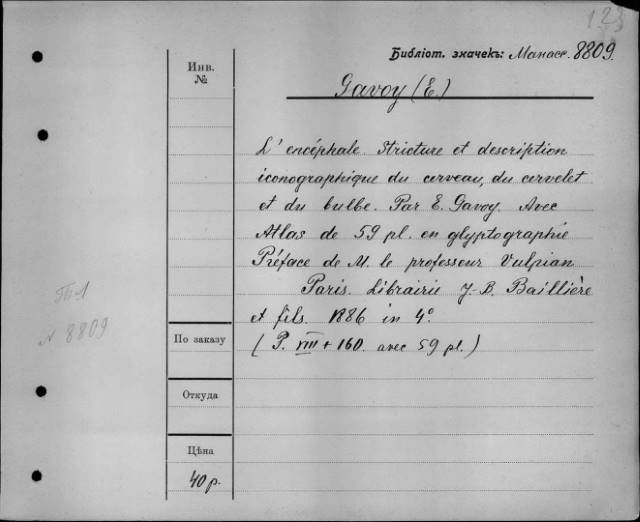 123
Библіот. значекъ: Манасс. 8809.
Инв.
№
Gavoy (E.)
L'encéphale. Stricture et description
iconographique du cerveau, du cervelet
et du bulbe. Par E. Gavoy. Avec
Atlas de 59 pl. en glyptographie
Préface de M. le professeur Vulpian
Paris. Librairie J.-B. Baillière
et fils. 1886 in 4°.
(P. VIII + 160. avec 59 pl.)
N 8809
По заказу
Откуда
Цѣна
40 р.